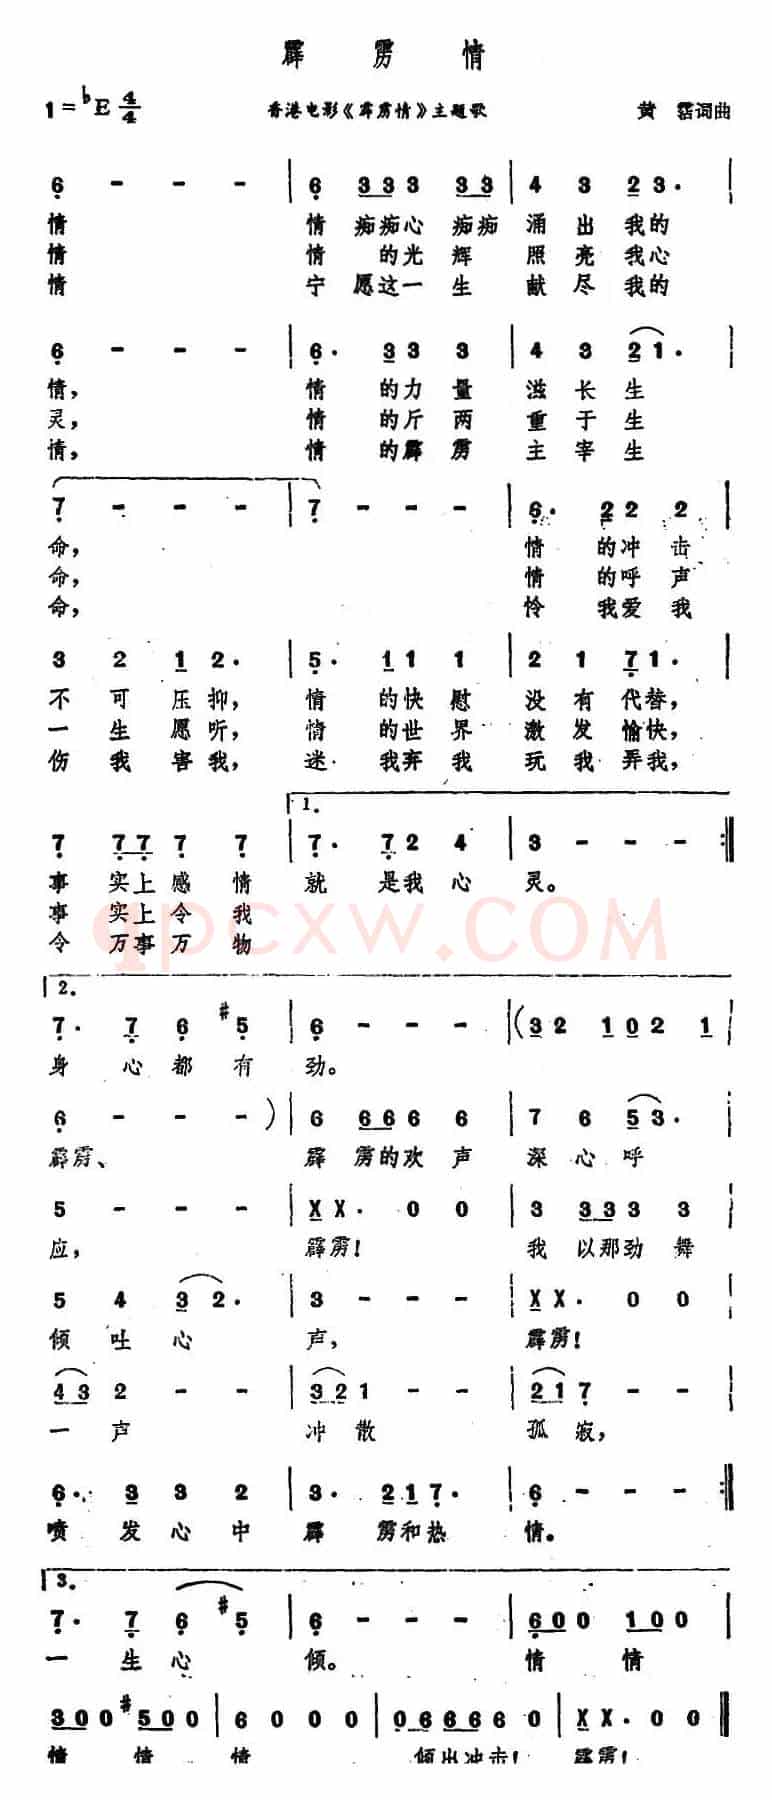 霹雳情
1=♭E 4/4 香港电影《霹雳情》主题歌 黄霑词曲
6 - - - | 6 33 3 33 | 4 3 2 3. |
情 情 痴痴心 痴痴 涌出我的
情 情 的光辉 照亮我心
情 宁愿这一生 献尽我的
6 - - - | 6. 3 3 3 | 4 3 2 1. |
情, 情 的力量 滋长生
灵, 情 的斤两 重于生
情, 情 的霹雳 主宰生
7 - - - | 7 - - - | 6. 2 2 2 |
命, 情 的冲击
命, 情 的呼声
命, 怜 我爱我
3 2 1 2. | 5. 1 1 1 | 2 1 7 1. |
不可压抑, 情 的快慰 没有代替,
一生愿听, 情 的世界 激发愉快,
伤我害我, 迷 我弃我 玩我弄我,
1.
7 77 7 7 | 7. 7 2 4 | 3 - - - :|
事实上感情 就 是我心灵。
事实上令我
令万事万物
qpcxw.COM
2.
7. 7 6 #5 | 6 - - - | (3 2 1 0 2 1 |
身 心都有劲。
6 - - - ) | 6 66 6 6 | 7 6 5 3. |
霹雳、 霹雳的欢声 深心呼
5 - - - | X X. 0 0 | 3 33 3 3 |
应, 霹雳! 我以那劲舞
5 4 3 2. | 3 - - - | X X. 0 0 |
倾吐心 声, 霹雳!
43 2 - - | 32 1 - - | 21 7 - - |
一声 冲散 孤寂,
6. 3 3 2 | 3. 2 1 7. | 6 - - - :|
喷 发心中 霹 雳和热 情。
3.
7. 7 6 #5 | 6 - - - | 6 0 0 1 0 0 |
一 生心 倾。 情 情
3 0 0 #5 0 0 | 6 0 0 0 | 0 6 6 6 6 0 | X X. 0 0 |
情 情 情 倾出冲击! 霹雳!